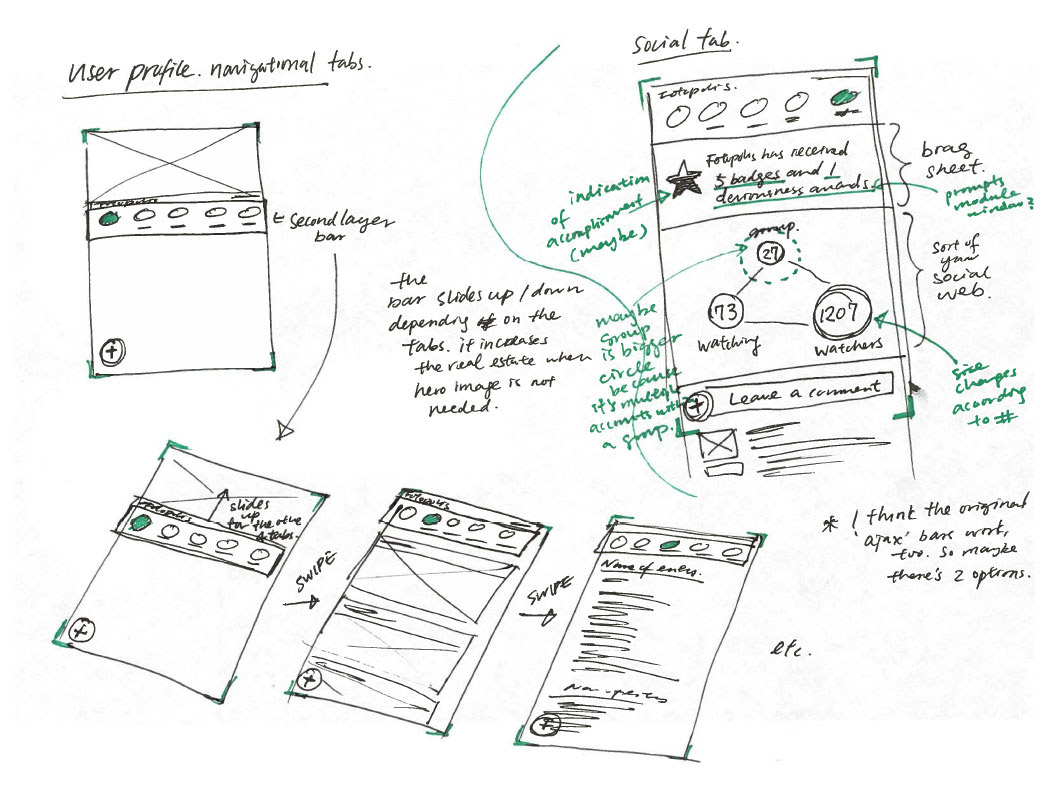 User profile. navigational tabs.
← second layer
bar
the
bar slides up/down
depending on the
tabs. it increases
the real estate when
hero image is not
needed.
slides
up
for the other
4 tabs.
SWIPE
Fotopolis
SWIPE
Name of
etc.
Social tab.
Fotopolis.
Fotopolis has received
5 badges and 1
deviousness awards.
indication
of
accomplishment
(maybe)
brag
sheet.
prompts
module
window?
group.
27
73
1207
watching
watchers
sort of
your
social
web.
maybe
group
is bigger
circle
because
it's multiple
accounts with
a group.
size
changes
according
to #
Leave a comment
* I think the original
'ajax' bars work,
too. So maybe
there's 2 options.